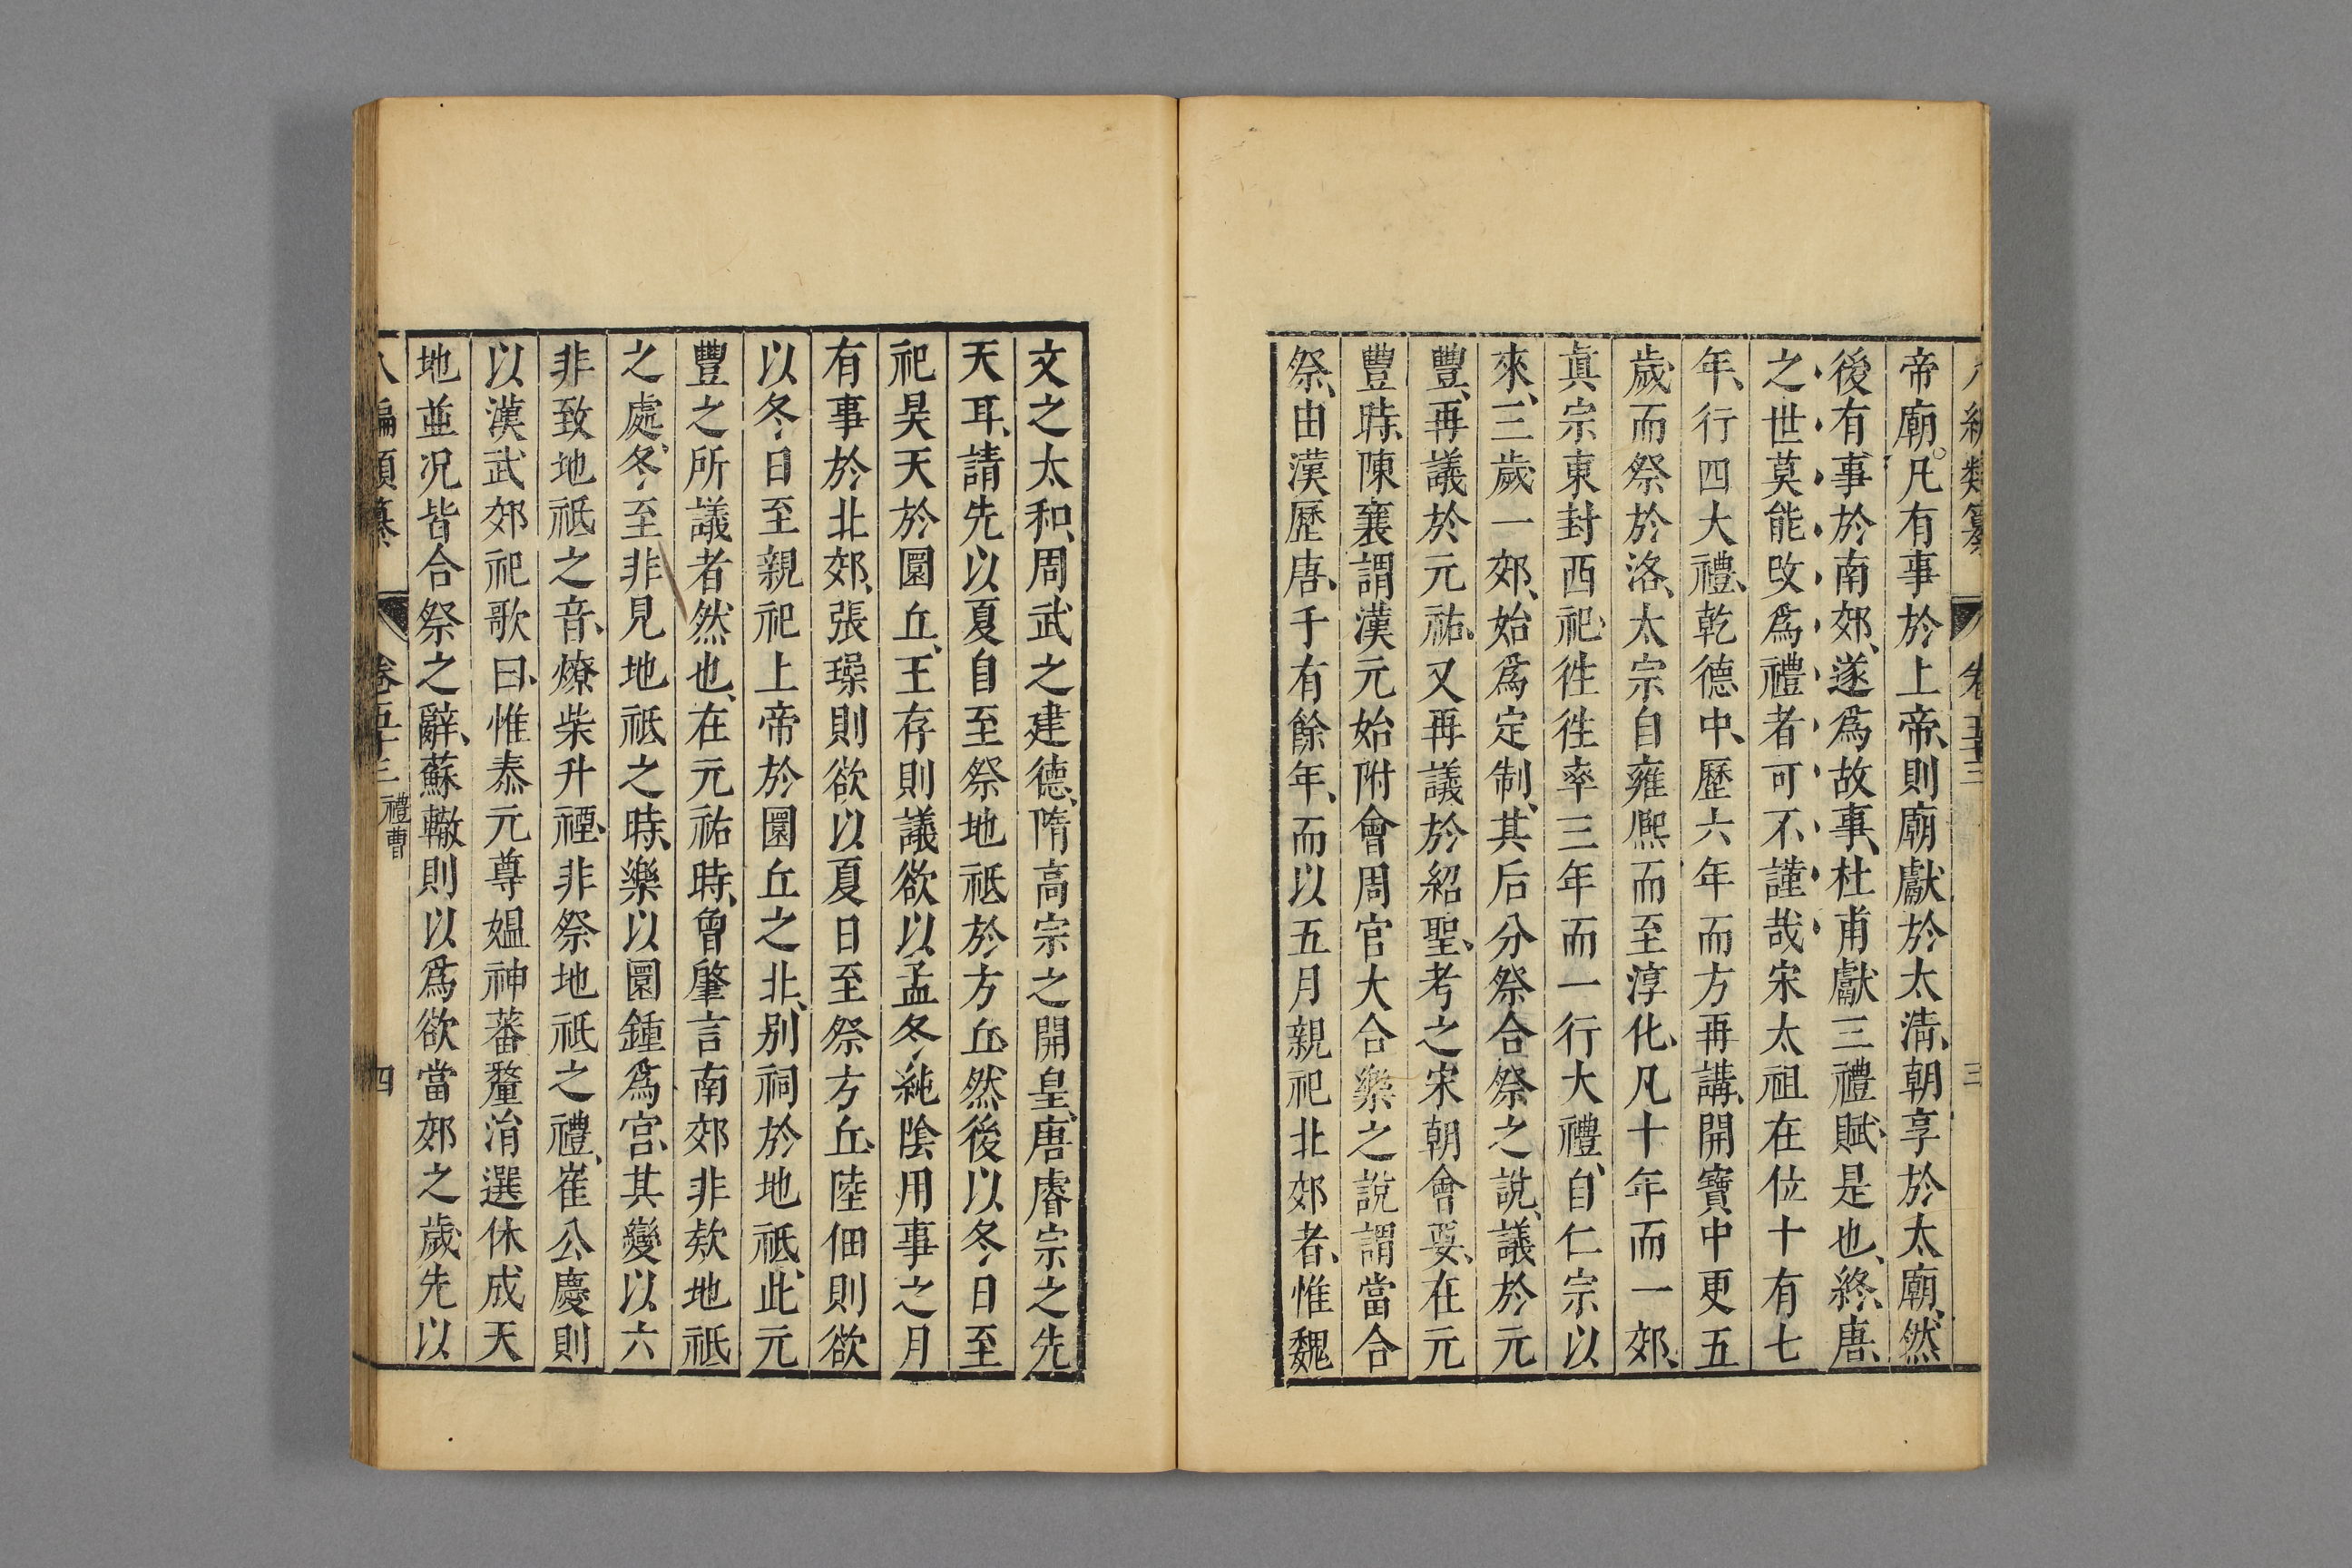 八編類纂 卷五十三 三
帝廟。凡有事於上帝、則廟獻於太清、朝享於太廟、然
後有事於南郊、遂爲故事、杜甫獻三禮賦、是也、終唐、
之世莫能改爲禮者可不謹哉宋太祖在位十有七
年、行四大禮、乾德中、歷六年而方再講、開寶中更五
歲而祭於洛、太宗自雍熙而至淳化、凡十年而一郊、
眞宗東封西祀、徃徃率三年而一行大禮、自仁宗以
來、三歲一郊、始爲定制、其后分祭合祭之說、議於元
豐、再議於元祐、又再議於紹聖、考之宋朝會要、在元
豐時、陳襄謂漢元始附會周官大合樂之說謂當合
祭、由漢歷唐、千有餘年、而以五月親祀北郊者、惟魏
文之太和、周武之建德、隋高宗之開皇、唐睿宗之先
天耳、請先以夏自至祭地祗於方丘、然後以冬日至
祀昊天於圜丘、王存則議欲以孟冬純陰用事之月
有事於北郊、張璪則欲以夏日至祭方丘、陸佃則欲
以冬日至親祀上帝於圜丘之北、别祠於地祗、此元
豐之所議者然也、在元祐時、曾肇言南郊非欵地祗
之處、冬至非見地祗之時、樂以圜鍾爲宮、其變以六
非致地祗之音、燎柴升禋、非祭地祗之禮、崔公慶則
以漢武郊祀歌曰、惟泰元尊媼神蕃釐消選休成天
地並况皆合祭之辭、蘇轍則以爲欲當郊之歲先以
八編類纂 卷五十三 禮曹 四